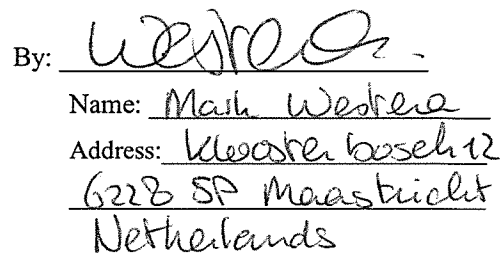 By: Westera
Name: Mark Westera
Address: Kloosterbosch 12
6228 SP Maastricht
Netherlands